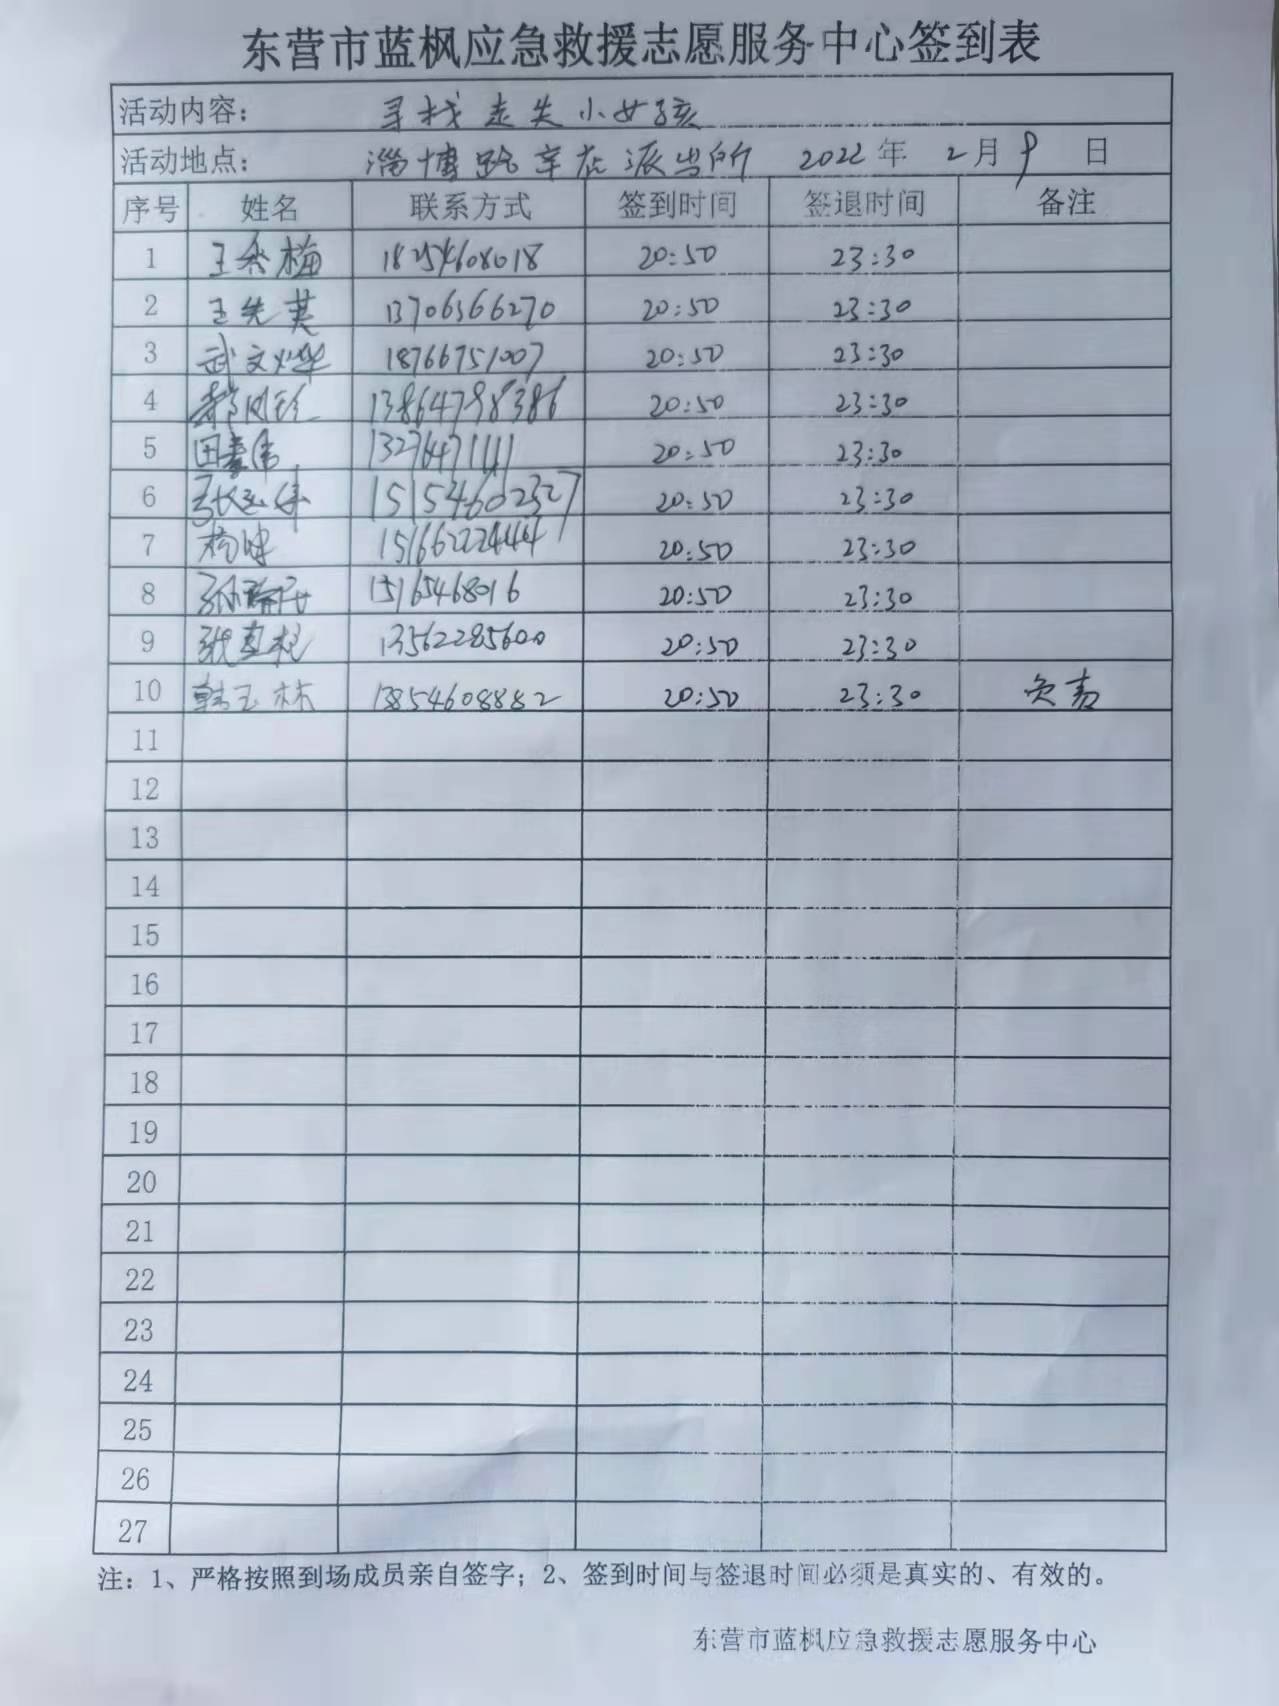 东营市蓝枫应急救援志愿服务中心签到表
活动内容： 寻找走失小女孩
活动地点： 淄博路辛店派出所 2022年 2月9 日
序号 姓名 联系方式 签到时间 签退时间 备注
1 王秀梅 18254608018 20:50 23:30
2 王先英 13706366270 20:50 23:30
3 武文烨 18766751007 20:50 23:30
4 13864798386 20:50 23:30
5 田 13276471111 20:50 23:30
6 张 15154602327 20:50 23:30
7 15166222444 20:50 23:30
8 孙 15165468016 20:50 23:30
9 张 13562285600 20:50 23:30
10 韩玉林 13854608882 20:50 23:30 负责
11
12
13
14
15
16
17
18
19
20
21
22
23
24
25
26
27
注：1、严格按照到场成员亲自签字；2、签到时间与签退时间必须是真实的、有效的。
东营市蓝枫应急救援志愿服务中心